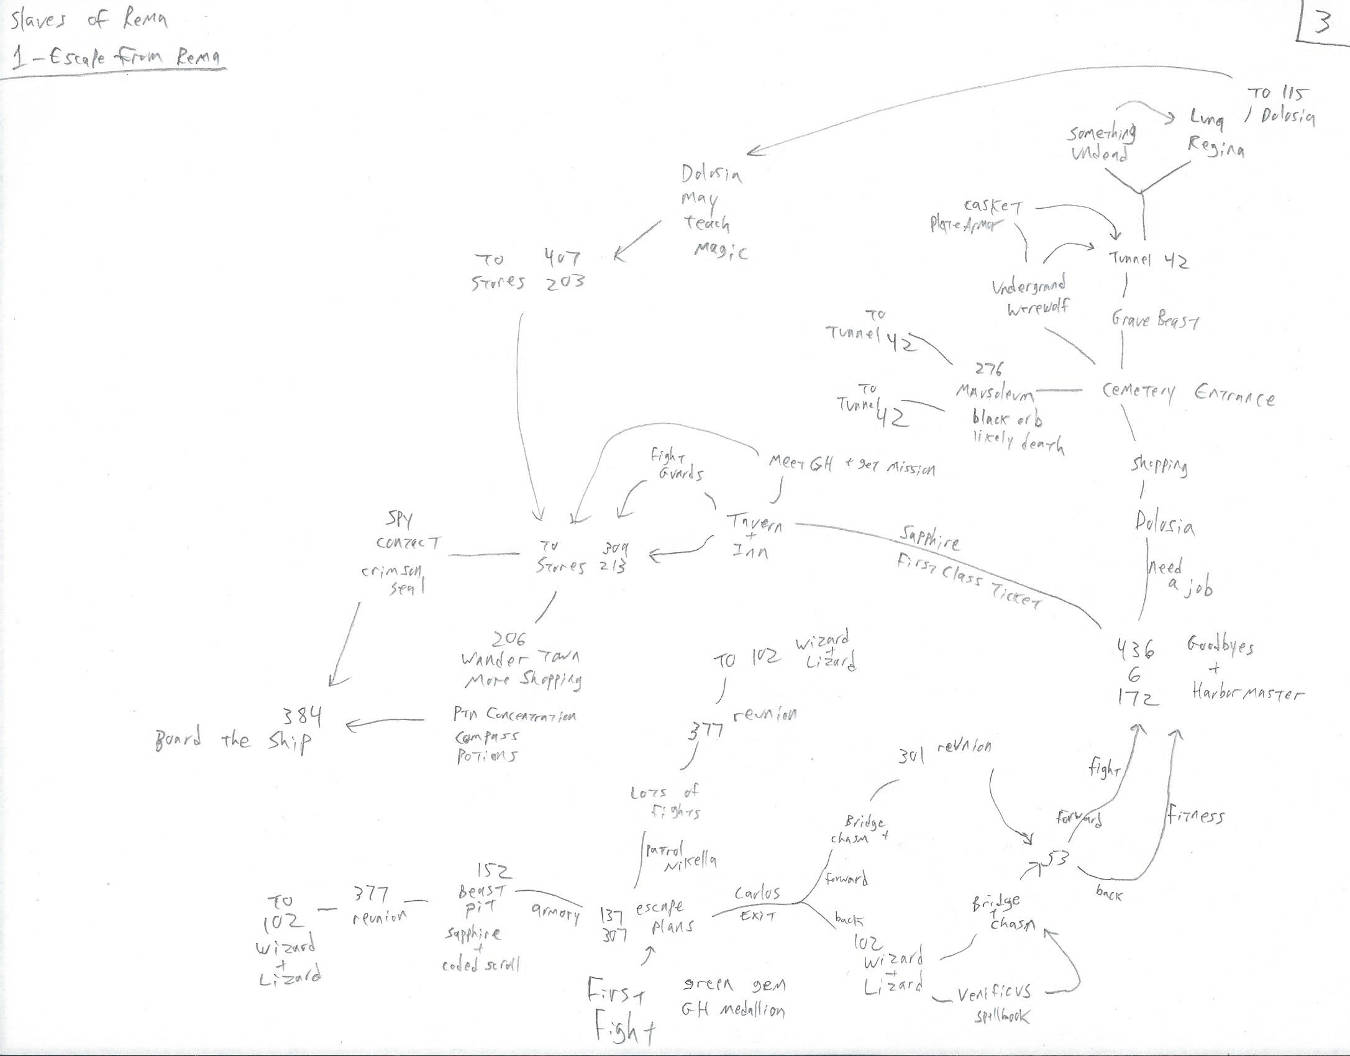 Slaves of Rema
1-Escape From Rema
3
TO 115
Dolosia
Something
Undead
Luna
Regina
Dolosia
May
Teach
Magic
casket
Plate Armor
Tunnel 42
TO 407
Stores 203
Underground
Werewolf
Grave Beast
TO
Tunnel 42
276
Mausoleum
black orb
likely death
Cemetery Entrance
TO
Tunnel 42
Shopping
Fight
Guards
Meet GH + get Mission
Dolosia
need
a job
Tavern
+
Inn
Sapphire
First Class Ticket
SPY
contact
crimson
seal
TO 309
Stores 213
206
Wander Town
More Shopping
Ptn Concentration
Compass
Potions
384
Board the Ship
TO 102 Wizard
+
Lizard
377 reunion
436
6
172
Goodbyes
+
Harbor Master
Lots of
Fights
Patrol
Nikella
301 reunion
Bridge
chasm +
forward
fight
forward
Fitness
53
back
Bridge
+
chasm
TO
102
Wizard
+
Lizard
377
reunion
152
Beast
Pit
sapphire
+
coded scroll
armory
137
307
escape
plans
Carlos
Exit
back
102
Wizard
+
Lizard
Venificus
spellbook
First
Fight
green gem
GH medallion